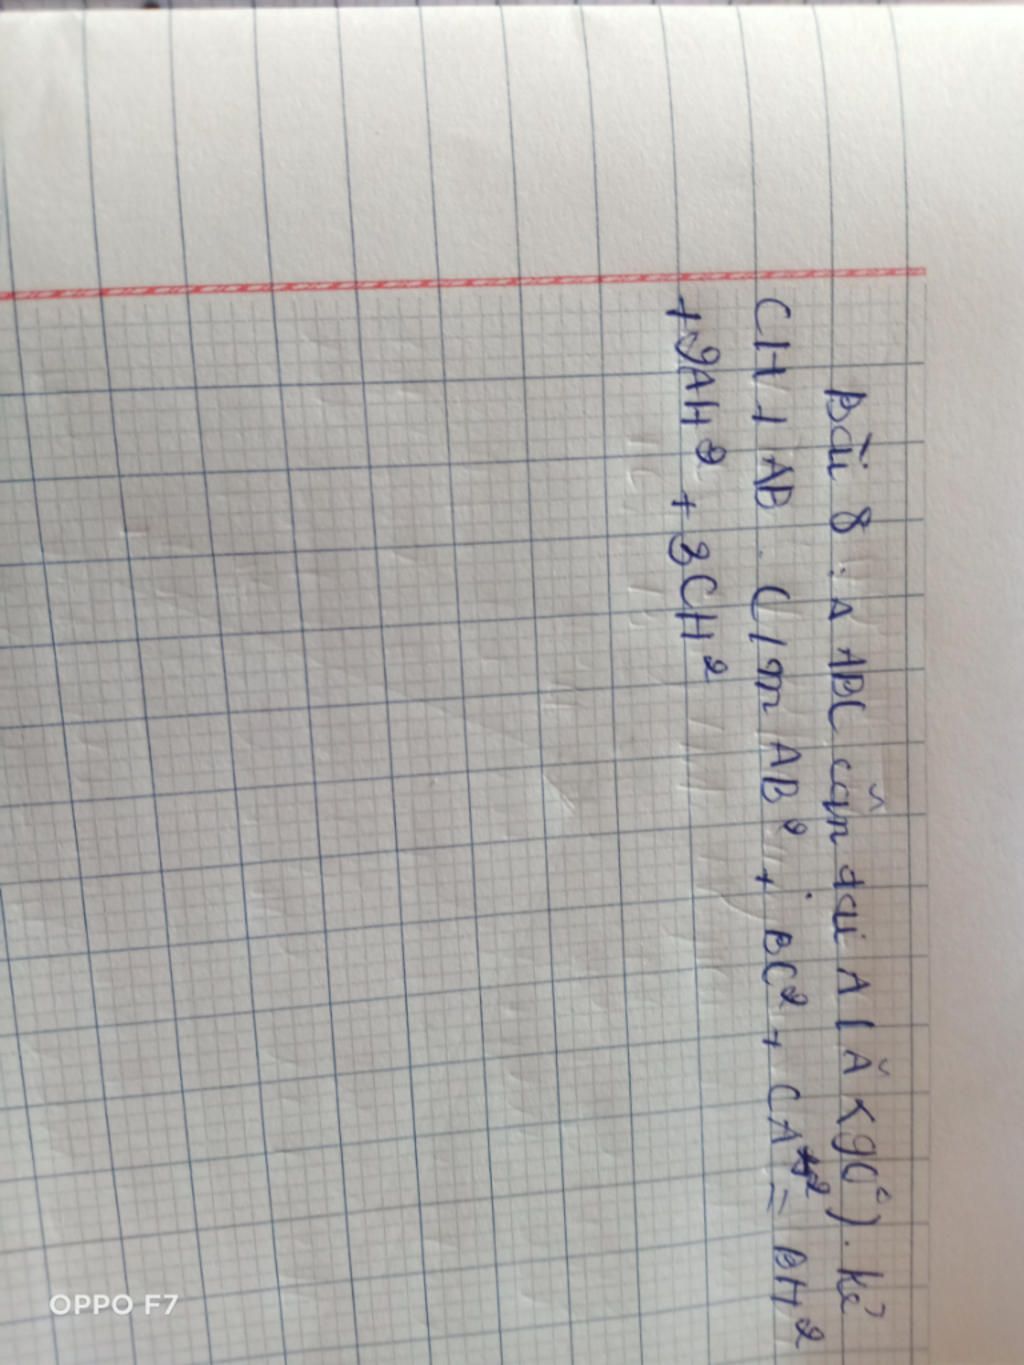 Bài 8 : Δ ABC cân tại A ( Â < 90° ). Kẻ
CH ⊥ AB . C/m AB² + BC² + CA² = BH²
+ 2AH² + 3CH²
OPPO F7